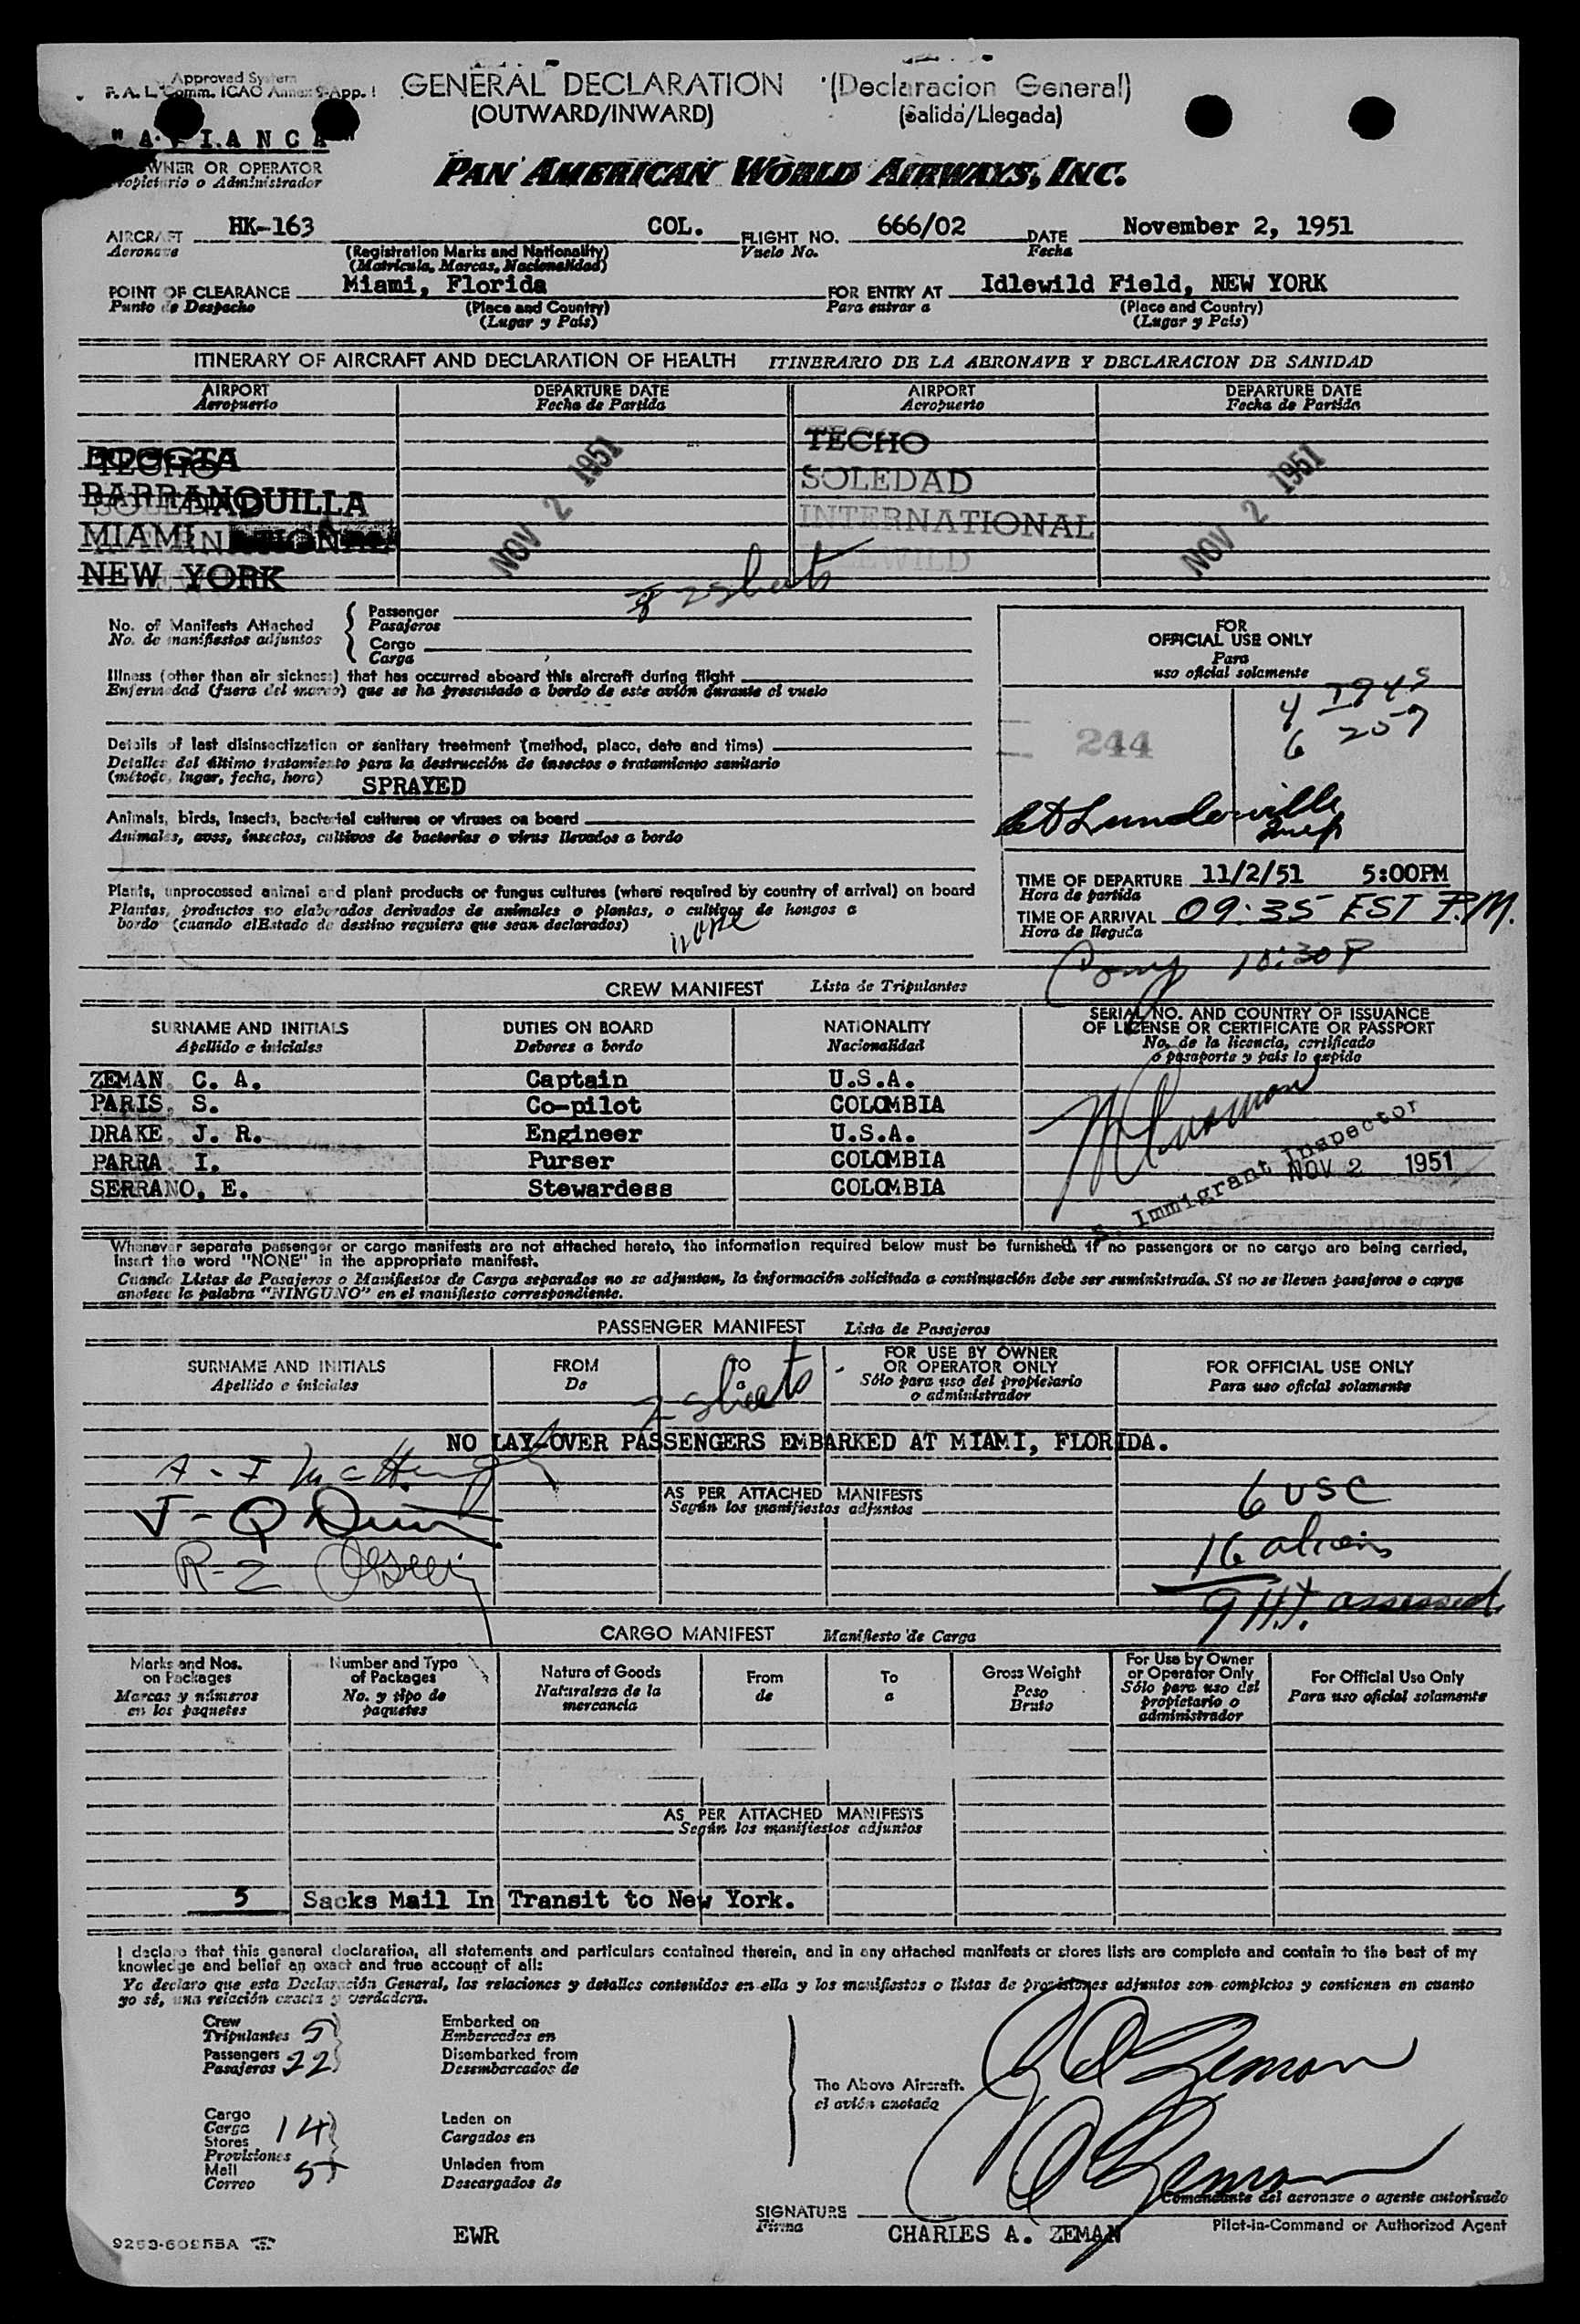 Approved System
F. A. L. Comm. ICAO Annex 9-App. 1
GENERAL DECLARATION (Declaracion General)
(OUTWARD/INWARD) (Salida/Llegada)
"A I A N C A"
OWNER OR OPERATOR
Propietario o Administrador
PAN AMERICAN WORLD AIRWAYS, INC.
AIRCRAFT HK-163 COL. FLIGHT NO. 666/02 DATE November 2, 1951
Aeronave (Registration Marks and Nationality) Vuelo No. Fecha
(Matricula, Marcas, Nacionalidad)
POINT OF CLEARANCE Miami, Florida FOR ENTRY AT Idlewild Field, NEW YORK
Punto de Despacho (Place and Country) Para entrar a (Place and Country)
(Lugar y País) (Lugar y País)
ITINERARY OF AIRCRAFT AND DECLARATION OF HEALTH ITINERARIO DE LA AERONAVE Y DECLARACION DE SANIDAD
AIRPORT DEPARTURE DATE AIRPORT DEPARTURE DATE
Aeropuerto Fecha de Partida Aeropuerto Fecha de Partida
BOGOTA TECHO
BARRANQUILLA SOLEDAD
MIAMI INTERNATIONAL
NEW YORK IDLEWILD
NOV 2 1951 NOV 2 1951
2 sheets
No. of Manifests Attached Passenger
No. de manifiestos adjuntos Pasajeros
Cargo
Carga
Illness (other than air sickness) that has occurred aboard this aircraft during flight
Enfermedad (fuera del mareo) que se ha presentado a bordo de este avión durante el vuelo
Details of last disinsectization or sanitary treatment (method, place, date and time)
Detalles del último tratamiento para la destrucción de insectos o tratamiento sanitario
(método, lugar, fecha, hora) SPRAYED
Animals, birds, insects, bacterial cultures or viruses on board
Animales, aves, insectos, cultivos de bacterias o virus llevados a bordo
Plants, unprocessed animal and plant products or fungus cultures (where required by country of arrival) on board
Plantas, productos no elaborados derivados de animales o plantas, o cultivos de hongos a
bordo (cuando el Estado de destino requiera que sean declarados) none
FOR
OFFICIAL USE ONLY
Para
uso oficial solamente
244
4 1945
6 257
Insp
TIME OF DEPARTURE 11/2/51 5:00PM
Hora de partida
TIME OF ARRIVAL 09:35 EST P.M.
Hora de llegada
10:30 P
CREW MANIFEST Lista de Tripulantes
SURNAME AND INITIALS DUTIES ON BOARD NATIONALITY SERIAL NO. AND COUNTRY OF ISSUANCE
OF LICENSE OR CERTIFICATE OR PASSPORT
Apellido e iniciales Deberes a bordo Nacionalidad No. de la licencia, certificado
o pasaporte y país lo expide
ZEMAN, C. A. Captain U.S.A.
PARIS, S. Co-pilot COLOMBIA
DRAKE, J. R. Engineer U.S.A.
PARRA, I. Purser COLOMBIA
SERRANO, E. Stewardess COLOMBIA
Immigrant Inspector
NOV 2 1951
Whenever separate passenger or cargo manifests are not attached hereto, the information required below must be furnished. If no passengers or no cargo are being carried,
insert the word "NONE" in the appropriate manifest.
Cuando Listas de Pasajeros o Manifiestos de Carga separados no se adjuntan, la información solicitada a continuación debe ser suministrada. Si no se lleven pasajeros o carga
anotese la palabra "NINGUNO" en el manifiesto correspondiente.
PASSENGER MANIFEST Lista de Pasajeros
SURNAME AND INITIALS FROM TO FOR USE BY OWNER
OR OPERATOR ONLY FOR OFFICIAL USE ONLY
Apellido e iniciales De a Sólo para uso del propietario
o administrador Para uso oficial solamente
2 sheets
NO LAY-OVER PASSENGERS EMBARKED AT MIAMI, FLORIDA.
AS PER ATTACHED MANIFESTS
Según los manifiestos adjuntos
6 USC
16 aliens
9 H.T. assessed
CARGO MANIFEST Manifiesto de Carga
Marks and Nos.
on Packages
Marcas y números
en los paquetes
Number and Type
of Packages
No. y tipo de
paquetes
Nature of Goods
Naturaleza de la
mercancia
From
de
To
a
Gross Weight
Peso
Bruto
For Use by Owner
or Operator Only
Sólo para uso del
propietario o
administrador
For Official Use Only
Para uso oficial solamente
AS PER ATTACHED MANIFESTS
Según los manifiestos adjuntos
5 Sacks Mail In Transit to New York.
I declare that this general declaration, all statements and particulars contained therein, and in any attached manifests or stores lists are complete and contain to the best of my
knowledge and belief an exact and true account of all:
Yo declaro que esta Declaración General, las relaciones y detalles contenidos en ella y los manifiestos o listas de provisiones adjuntos son completos y contienen en cuanto
yo sé, una relación exacta y verdadera.
Crew Embarked on
Tripulantes 5 Embarcados en
Passengers Disembarked from
Pasajeros 22 Desembarcados de
The Above Aircraft.
el avión anotado
Cargo
Carga 14 Laden on
Stores Cargados en
Provisiones
Mail 5 Unladen from
Correo Descargados de
C A Zeman
C A Zeman
Comandante del aeronave o agente autorizado
SIGNATURE
Firma CHARLES A. ZEMAN Pilot-in-Command or Authorized Agent
EWR